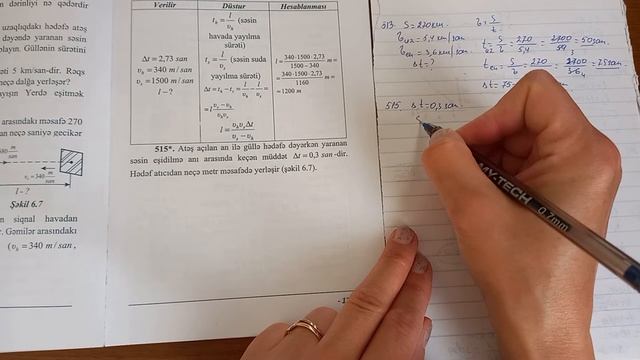 dərinliyi nə qədərdir
uzaqlıqdakı hədəfə atəş
dəyəndə yaranan səsin
Güllənin sürətini
5 km/san-dir.
dalğa yerləşər?
Yerdə eşitmək
arasındakı məsafə 270
neçə saniyə gecikər
m/san
υs=340 m/san
l - ?
Şəkil 6.7
siqnal havadan
Gəmilər arasındakı
(υh = 340 m/san,
Verilir Düstur Hesablanması
Δt = 2,73 san
υh = 340 m/san
υs = 1500 m/san
l – ?
th = l/υh (səsin
havada yayılma
sürəti)
ts = l/υs (səsin suda
yayılma sürəti)
Δt = th – ts = l/υh – l/υs =
= l (υs – υh)/(υhυs)
l = υhυsΔt/(υs – υh)
l = 340·1500·2,73/(1500 – 340) m =
= 340·1500·2,73/1160 m =
≈ 1200 m
515*. Atəş açılan an ilə güllə hədəfə dəyərkən yaranan
səsin eşidilmə anı arasında keçən müddət Δt = 0,3 san-dir.
Hədəf atıcıdan neçə metr məsafədə yerləşir (şəkil 6.7).
513 S=270km.
= 5,4 km/san
= 3,6 km/san
Δt = ?
υ = S/t
t = S/υ = 270/5,4 = 2700/54 = 50 san.
t = S/υ = 270/3,6 = 2700/36 = 75 san
515 Δt=0,3 san.
MY-TECH 0.7mm